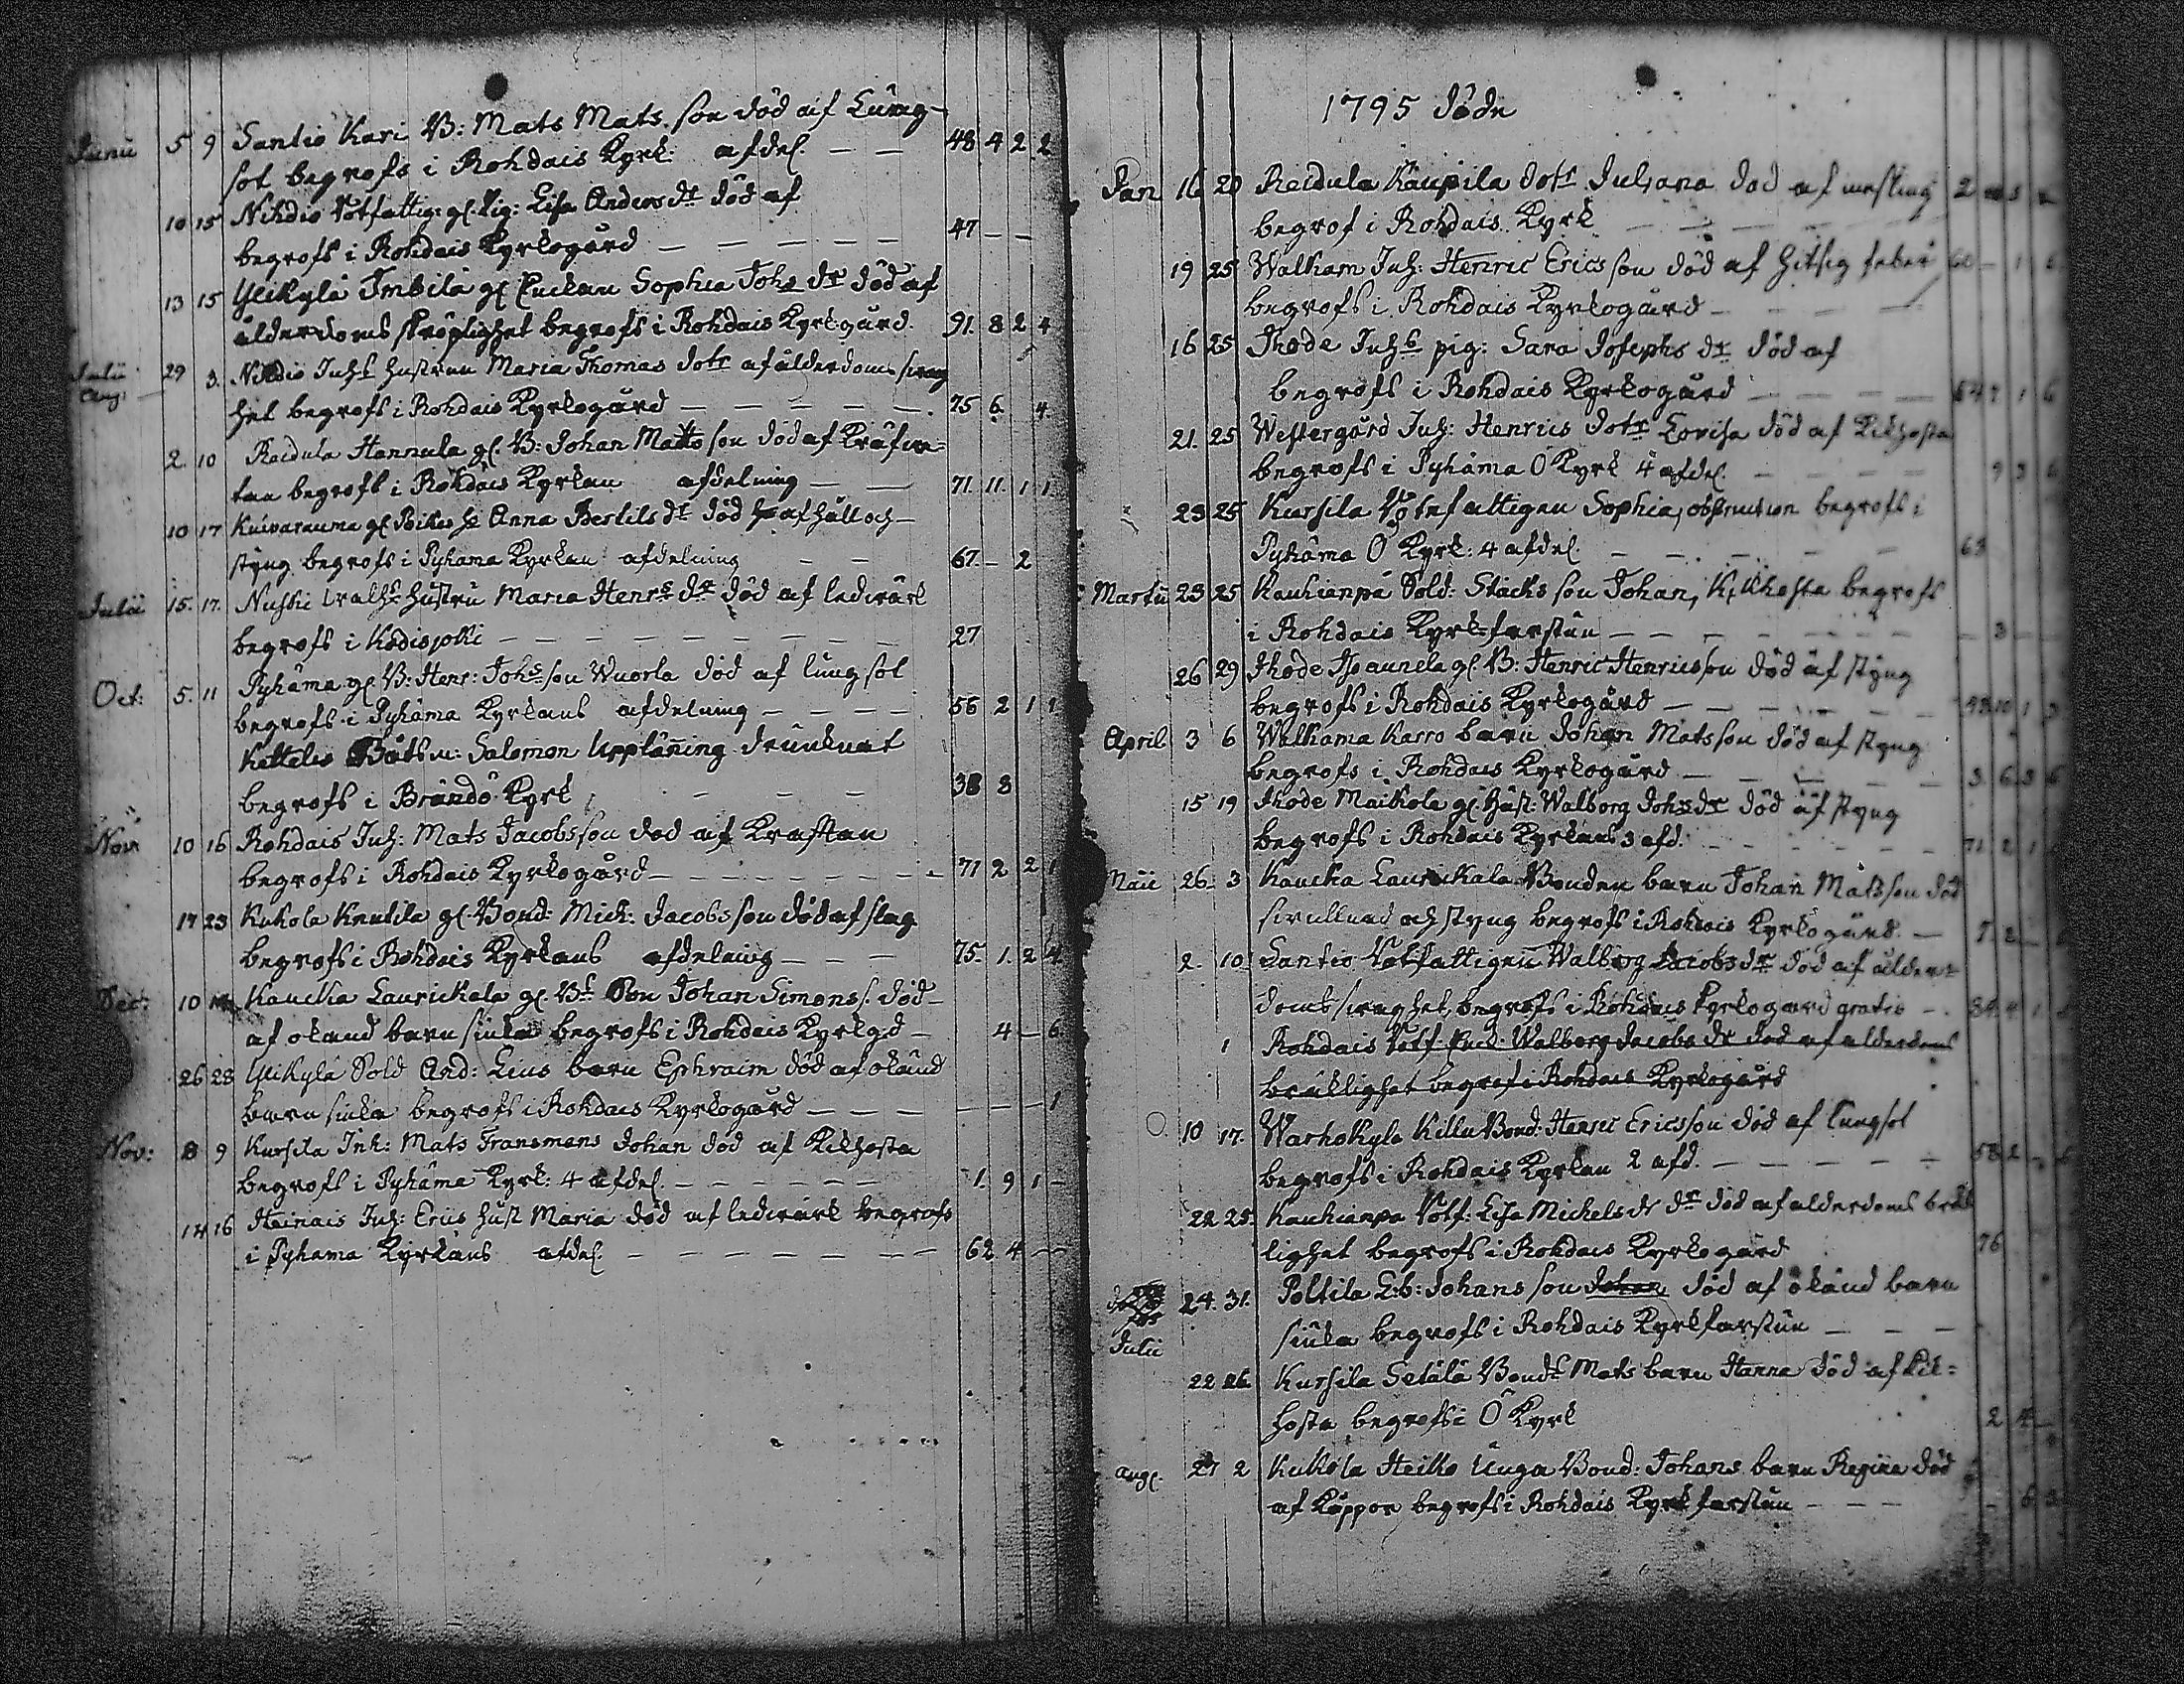 Junii 5 9 Santio Kari B: Mats Mats son död af Lung-
sot begrofs i Rohdais Kyrk: afdel. — — 48 4 2 2
10 15 Nihdio Rotfattig: gl. Pig: Lisa Anders dr död af
begrofs i Rohdais Kyrkogård — — — — — 47 — —
13 15 Ylikylä Imbilä gl. Enckan Sophia Johs dr död af
ålderdoms skröplighet begrofs i Rohdais Kyrkogård. 91. 8 2 4
Julii Aug: 29 3. Nihdio Inhs hustru Maria Thomas dotr af ålderdoms svag
het begrofs i Rohdais Kyrkogård — — — — — 75 6. 4.
2. 10 Raidula Hannula gl. B: Johan Matts son död af Kräfwe=
tan begrofs i Rohdais Kyrkan afdelning — — 71. 11. 1 1.
10 17 Kuivarauma gl. Anna Bertils dr död af håll och
styng begrofs i Pyhäma Kyrkan afdelning — — 67. — 2
Julii 15. 17. hustru Maria Henrs dr död af ledvärk
begrofs i Kodisjoki — — — — — — — — 27
Oct: 5. 11 Pyhäma gl. B: Henr: Johs son Wuorla död af lungsot
begrofs i Pyhäma Kyrkans afdelning — — — — 56 2 1 1
Kettelis Båtsm: Salomon Uppläning drunknat
begrofs i Brändö Kyrk — — — 38 8
Nov: 10 16 Rohdais Inh: Mats Jacobsson död af Kraftan
begrofs i Rohdais Kyrkogård — — — — — — — — 71 2 2 1
17 23 Kukola Knutila gl. Bond: Mich: Jacobsson död af slag
begrofs i Rohdais Kyrkans afdelning — — — 75. 1. 2 4
Dec: 10 Kaucka Laurickala gl. Bs Son Johan Simons s. död
af okänd barnsiuka begrofs i Rohdais Kyrkgd — 4 — 6
26 28 Ylikylä Sold And: Lius barn Ephraim död af okänd
barnsiuka begrofs i Rohdais Kyrkogård — — — — — — 1
Nov: 8 9 Kursila Inh: Mats Fransmans Johan död af Kikhosta
begrofs i Pyhäma Kyrk: 4 afdel. — — — — — — 1. 9 1 —
14 16 Heinais Inh: Erics Hust Maria död af ledvärk begrofs
i Pyhäma Kyrkans afdel. — — — — — — — 62. 4 — —
1795 döde
Jan 16 20 Raidula Käupilä dotr Juliana död af mesling 2
begrof i Rohdais Kyrk — — — — —
19 25 Walkam Inh: Henric Erics son död af hitsig feber 60 — 1 6
begrofs i Rohdais Kyrkogård — — — —
16 25 Ihode Inhs pig: Sara Josephs dr död af
begrofs i Rohdais Kyrkogård — — — — 64 7 1 6
21. 25 Westergård Inh: Henrics dotr Lovisa död af Kikhosta
begrofs i Pyhäma Ö Kyrk 4 afdel. — — — — 9 3 6
23 25 Kursila Rotefattigen Sophia, obstruction begrofs i
Pyhäma Ö Kyrk: 4 afdel. — — — — — 63
Martii 23 25 Kauhianpä Sold: Stacks son Johan, Kikhosta begrofs
i Rohdais Kyrkfarstun — — — — — — — 3 — —
26 29 Ihode Paunela gl. B: Henric Henricsson död af styng
begrofs i Rohdais Kyrkogård — — — — — 10 1 3
April 3 6 Walkama Karro barn Johan Matsson död af styng
begrofs i Rohdais Kyrkogård — — — — — 3 6 3 6
15 19 Ihode Maikola gl. Hust: Walborg Johs dr död af styng
begrofs i Rohdais Kyrkans 3 afd: — — — — — 71 2 1
Maii 26. 3 Kaucka Laurickala Bonden barn Johan Matsson död
svullnad och styng begrofs i Rohdais Kyrkogård. —
2. 10 Santio Rotfattigen Walborg Jacobs dr död af ålder=
doms svaghet, begrofs i Rohdais Kyrkogård gratis —
1 Rohdais Rotf. Enck: Walborg Jacobs dr död af ålderdoms
bräcklighet begrof i Rohdais Kyrkogård
10 17. Warhokyla Killu Bond: Henric Ericsson död af lungsot
begrofs i Rohdais Kyrkan 2 afd. — — — — — 58 2 —
22 25. Kauhianpä Rotf: Lisa Michels dr dr död af ålderdoms bräck
lighet begrofs i Rohdais Kyrkogård 76
24. 31. Poltila L:b: Johans son Johan död af okänd barn
siuka begrofs i Rohdais Kyrkfarstun — — —
Julii
22 26. Kursila Setälä Bonds Mats barn Hanna död af Kik=
hosta begrofs i Ö Kyrk 2 4 —
Aug. 27 2 Kukola Heiko Unga Bond: Johans barn Regina död
af Koppor begrofs i Rohdais Kyrkfarstun — — — — 6 3